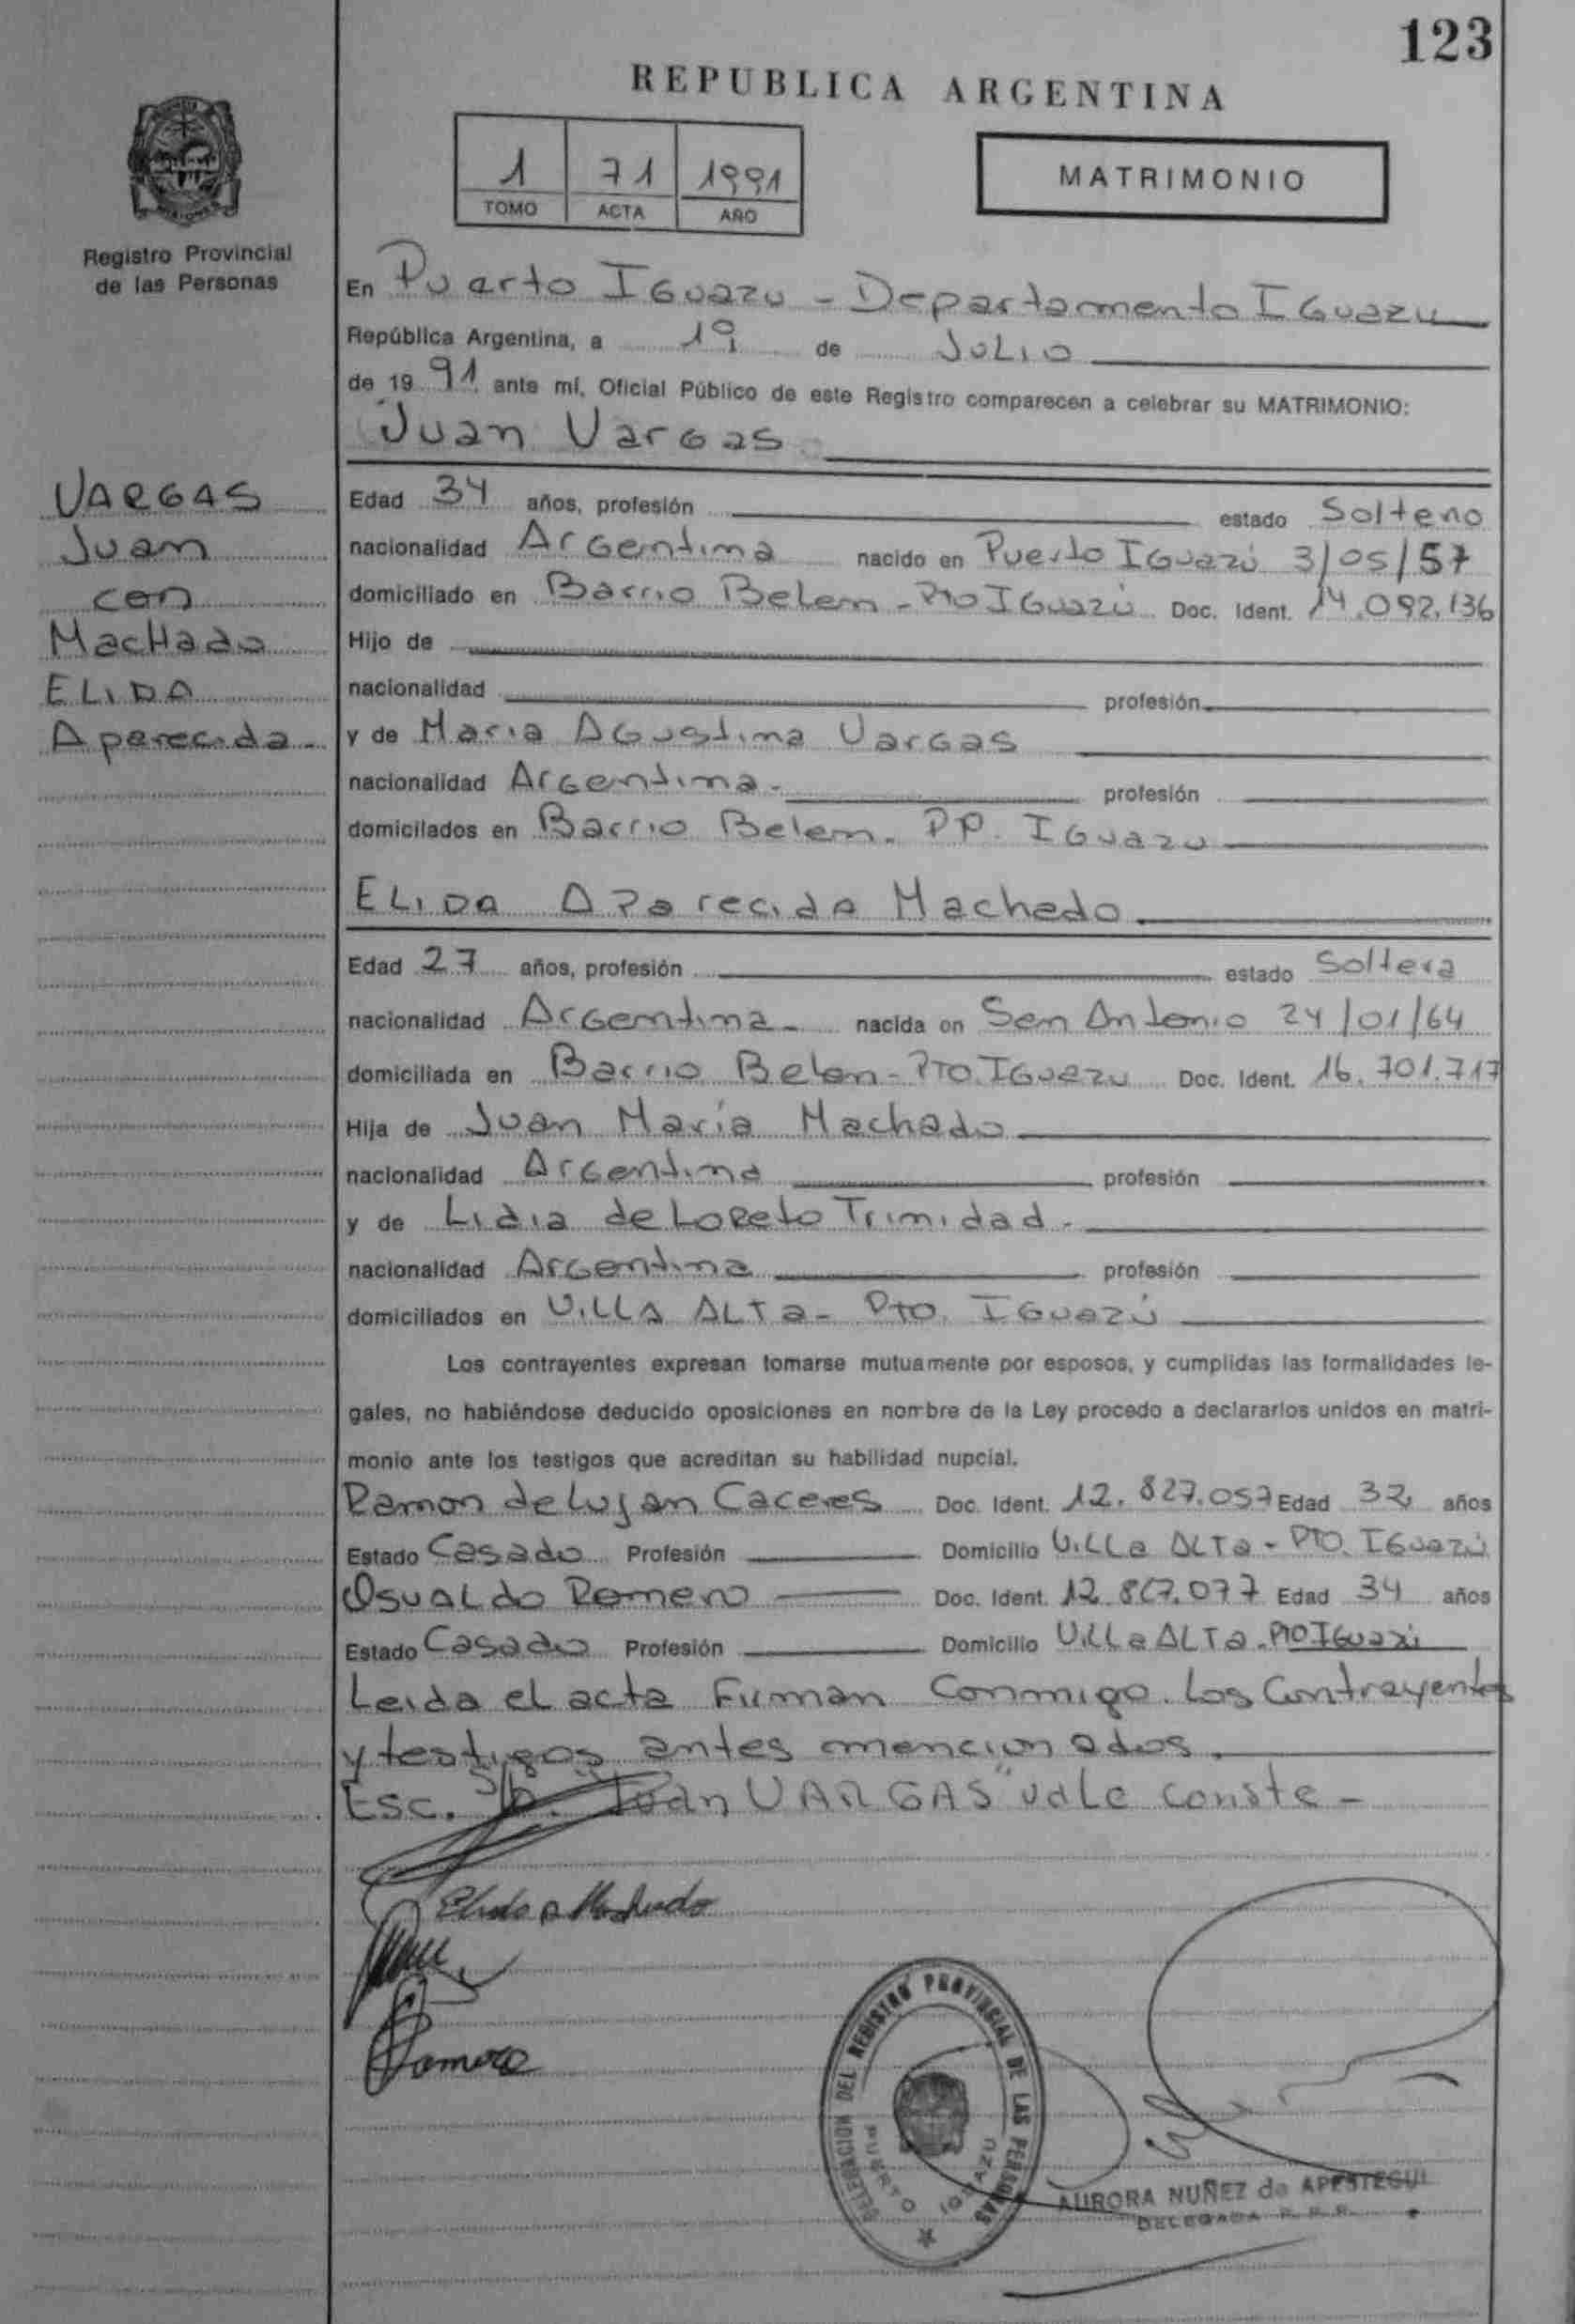 123
REPUBLICA ARGENTINA
1 71 1991
TOMO ACTA AÑO
MATRIMONIO
Registro Provincial
de las Personas
VARGAS
Juan
con
Machado
ELIDA
Aparecida-
En Puerto Iguazu - Departamento Iguazu
República Argentina, a 19 de Julio
de 19 91 ante mí, Oficial Público de este Registro comparecen a celebrar su MATRIMONIO:
Juan Vargas
Edad 34 años, profesión estado Soltero
nacionalidad Argentina nacido en Puerto Iguazú 3/05/57
domiciliado en Barrio Belem - Pto Iguazú Doc. Ident. 14.092.136
Hijo de
nacionalidad profesión
y de Maria Agustina Vargas
nacionalidad Argentina- profesión
domicilados en Barrio Belem. Iguazu
ELIDA Aparecida Machado
Edad 27 años, profesión estado Soltera
nacionalidad Argentina- nacida en San Antonio 24/01/64
domiciliada en Barrio Belen - Pto. Iguazu Doc. Ident. 16.701.717
Hija de Juan María Machado
nacionalidad Argentina profesión
y de Lidia de Loreto Trinidad-
nacionalidad Argentina profesión
domiciliados en Villa Alta - Pto. Iguazú
Los contrayentes expresan tomarse mutuamente por esposos, y cumplidas las formalidades le-
gales, no habiéndose deducido oposiciones en nombre de la Ley procedo a declararlos unidos en matri-
monio ante los testigos que acreditan su habilidad nupcial.
Ramon de Lujan Caceres Doc. Ident. 12.827.057 Edad 32 años
Estado Casado Profesión Domicilio Villa Alta - Pto. Iguazú
Osualdo Romero Doc. Ident. 12.867.077 Edad 34 años
Estado Casado Profesión Domicilio Villa Alta - Pto Iguazú
Leida el acta firman conmigo los contrayentes
y testigos antes mencionados.
Esc. Juan VARGAS" vale conste-
Elida A Machado
Romero
DELEGACION DEL REGISTRO PROVINCIAL DE LAS PERSONAS
PUERTO IGUAZU
AURORA NUÑEZ de APESTEGUI
DELEGADA R. P. P.